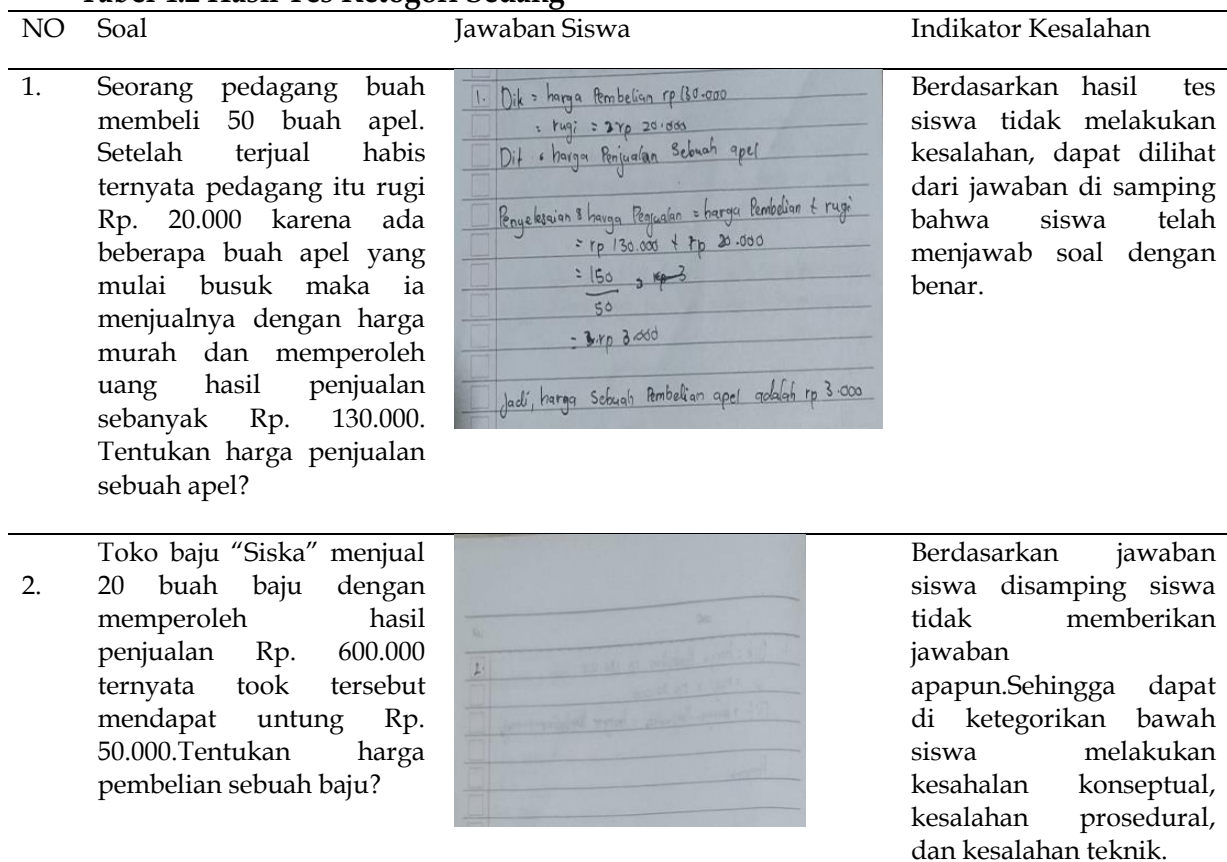 Tabel 4.2 Hasil Tes Ketegori Sedang
NO Soal Jawaban Siswa Indikator Kesalahan
1. Seorang pedagang buah
membeli 50 buah apel.
Setelah terjual habis
ternyata pedagang itu rugi
Rp. 20.000 karena ada
beberapa buah apel yang
mulai busuk maka ia
menjualnya dengan harga
murah dan memperoleh
uang hasil penjualan
sebanyak Rp. 130.000.
Tentukan harga penjualan
sebuah apel?
1. Dik = harga Pembelian rp 130.000
= rugi = rp 20.000
Dit = harga Penjualan Sebuah apel
Penyelesaian : harga Penjualan = harga Pembelian + rugi
= rp 130.000 + rp 20.000
= 150
50
= rp 3.000
Jadi, harga Sebuah Pembelian apel adalah rp 3.000
Berdasarkan hasil tes
siswa tidak melakukan
kesalahan, dapat dilihat
dari jawaban di samping
bahwa siswa telah
menjawab soal dengan
benar.
2. Toko baju “Siska” menjual
20 buah baju dengan
memperoleh hasil
penjualan Rp. 600.000
ternyata took tersebut
mendapat untung Rp.
50.000.Tentukan harga
pembelian sebuah baju?
2.
Berdasarkan jawaban
siswa disamping siswa
tidak memberikan
jawaban
apapun.Sehingga dapat
di ketegorikan bawah
siswa melakukan
kesahalan konseptual,
kesalahan prosedural,
dan kesalahan teknik.